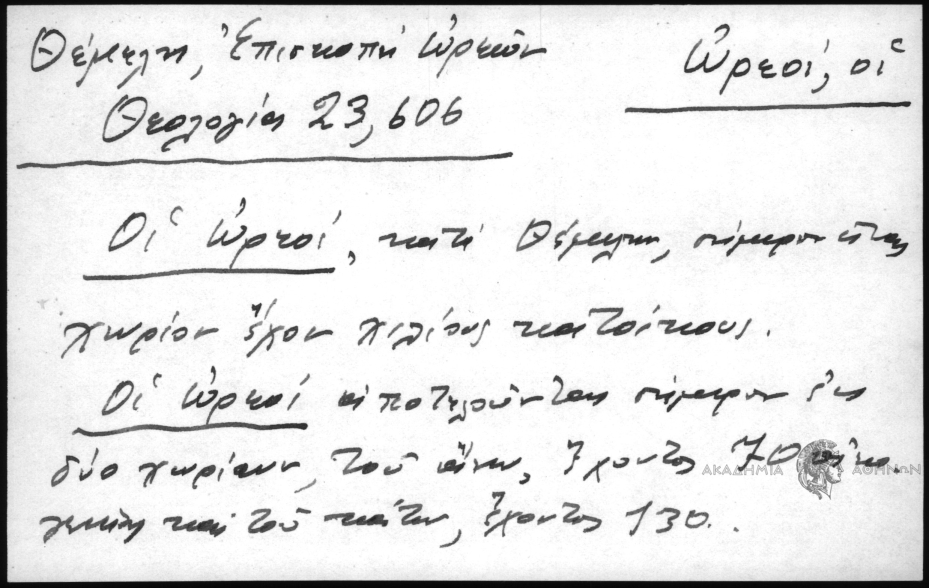 Θέμελη, Ἐπισκοπή Ὠρεῶν
Ὠρεοί, οἱ
Θεολογία 23,606
Οἱ Ὠρεοί, κατά Θέμελην, σήμερον εἶναι
χωρίον ἔχον χιλίους κατοίκους.
Οἱ Ὠρεοί ἀποτελοῦνται σήμερον ἐκ
δύο χωρίων, τοῦ ἄνω, ἔχοντος 70 οἰκο-
γενείας καί τοῦ κάτω, ἔχοντος 130.
ΑΚΑΔΗΜΙΑ ΑΘΗΝΩΝ